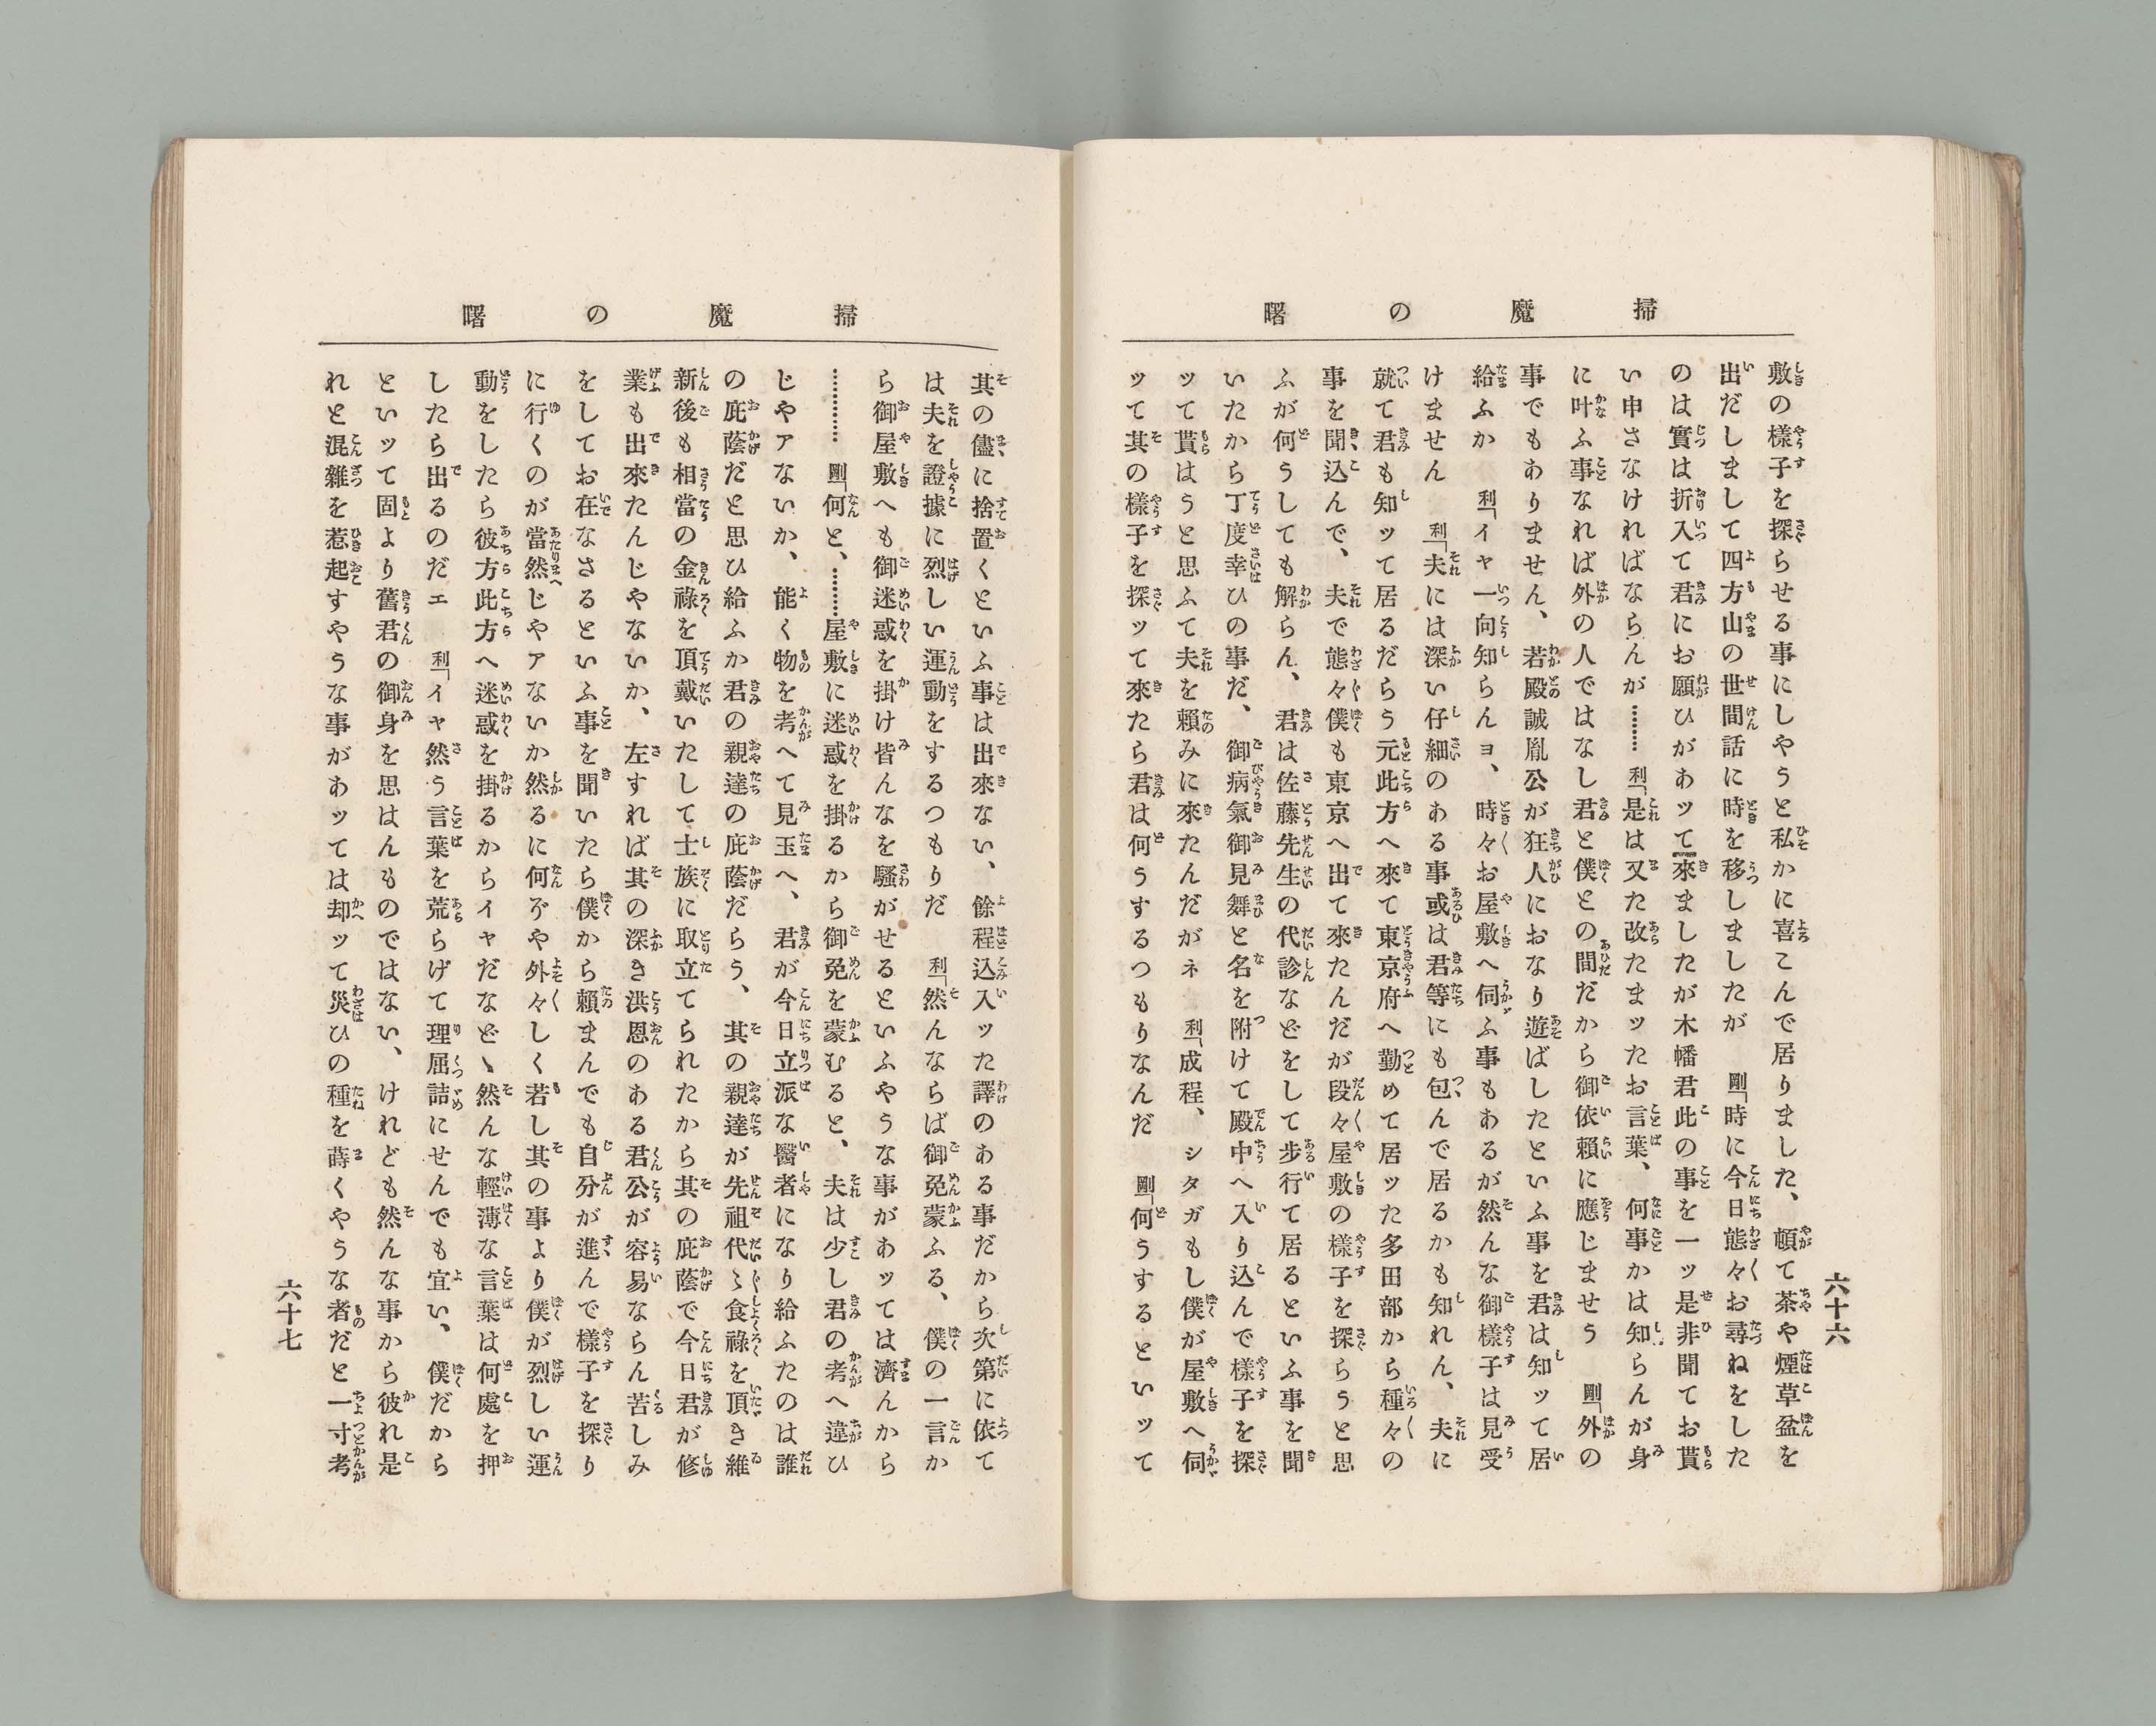 掃魔の曙
敷の樣子を探らせる事にしやうと私かに喜こんで居りました、頓て茶や煙草盆を
出だしまして四方山の世間話に時を移しましたが　剛「時に今日態々お尋ねをした
のは實は折入て君にお願ひがあッて來ましたが木幡君此の事を一ッ是非聞てお貰
い申さなければならんが………　利「是は又た改たまッたお言葉、何事かは知らんが身
に叶ふ事なれば外の人ではなし君と僕との間だから御依賴に應じませう　剛「外の
事でもありません、若殿誠胤公が狂人におなり遊ばしたといふ事を君は知ッて居
給ふか　利「イヤ一向知らんヨ、時々お屋敷へ伺ふ事もあるが然んな御樣子は見受
けません　利「夫には深い仔細のある事或は君等にも包んで居るかも知れん、夫に
就いて君も知ッて居るだらう元此方へ來て東京府へ勤めて居ッた多田部から種々の
事を聞込んで、夫で態々僕も東京へ出て來たんだが段々屋敷の樣子を探らうと思
ふが何うしても解らん、君は佐藤先生の代診などをして步行て居るといふ事を聞
いたから丁度幸ひの事だ、御病氣御見舞と名を附けて殿中へ入り込んで樣子を探
ッて貰はうと思ふて夫を賴みに來たんだがネ　利「成程、シタガもし僕が屋敷へ伺
ッて其の樣子を探ッて來たら君は何うするつもりなんだ　剛「何うするといッて
六十六
掃魔の曙
其の儘に捨置くといふ事は出來ない、餘程込入ッた譯のある事だから次第に依て
は夫を證據に烈しい運動をするつもりだ　利「然んならば御免蒙ふる、僕の一言か
ら御屋敷へも御迷惑を掛け皆んなを騷がせるといふやうな事があッては濟んから
…………　剛「何と、……屋敷に迷惑を掛るから御免を蒙むると、夫は少し君の考へ違ひ
じやアないか、能く物を考へて見玉へ、君が今日立派な醫者になり給ふたのは誰
の庇蔭だと思ひ給ふか君の親達の庇蔭だらう、其の親達が先祖代〻食祿を頂き維
新後も相當の金祿を頂戴いたして士族に取立てられたから其の庇蔭で今日君が修
業も出來たんじやないか、左すれば其の深き洪恩のある君公が容易ならん苦しみ
をしてお在なさるといふ事を聞いたら僕から賴まんでも自分が進んで樣子を探り
に行くのが當然じやアないか然るに何ぞや外々しく若し其の事より僕が烈しい運
動をしたら彼方此方へ迷惑を掛るからイヤだなどゝ然んな輕薄な言葉は何處を押
したら出るのだエ　利「イヤ然う言葉を荒らげて理屈詰にせんでも宜い、僕だから
といッて固より舊君の御身を思はんものではない、けれども然んな事から彼れ是
れと混雜を惹起すやうな事があッては却ッて災ひの種を蒔くやうな者だと一寸考
六十七